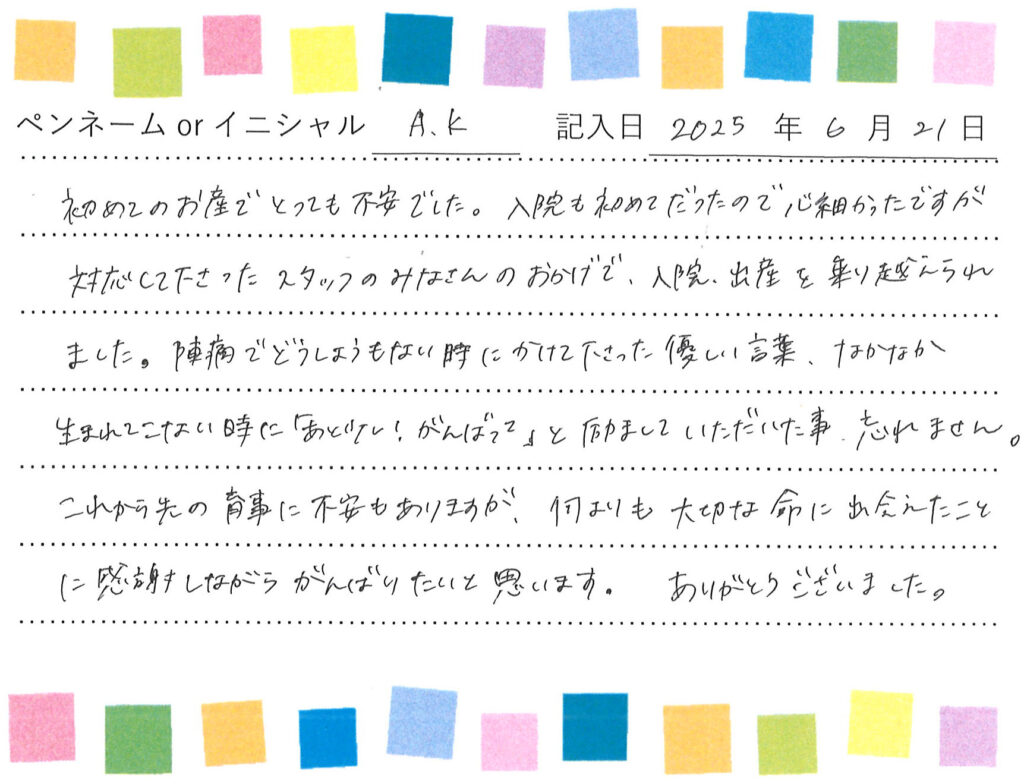 ペンネーム or イニシャル A.K 記入日 2025 年 6 月 21 日
初めてのお産でとっても不安でした。入院も初めてだったので心細かったですが
対応して下さったスタッフのみなさんのおかげで、入院、出産を乗り越えられ
ました。陣痛でどうしようもない時にかけて下さった優しい言葉、なかなか
生まれてこない時に「あと少し！がんばって」と励ましていただいた事、忘れません。
これから先の育事に不安もありますが、何よりも大切な命に出会えたこと
に感謝しながらがんばりたいと思います。 ありがとうございました。